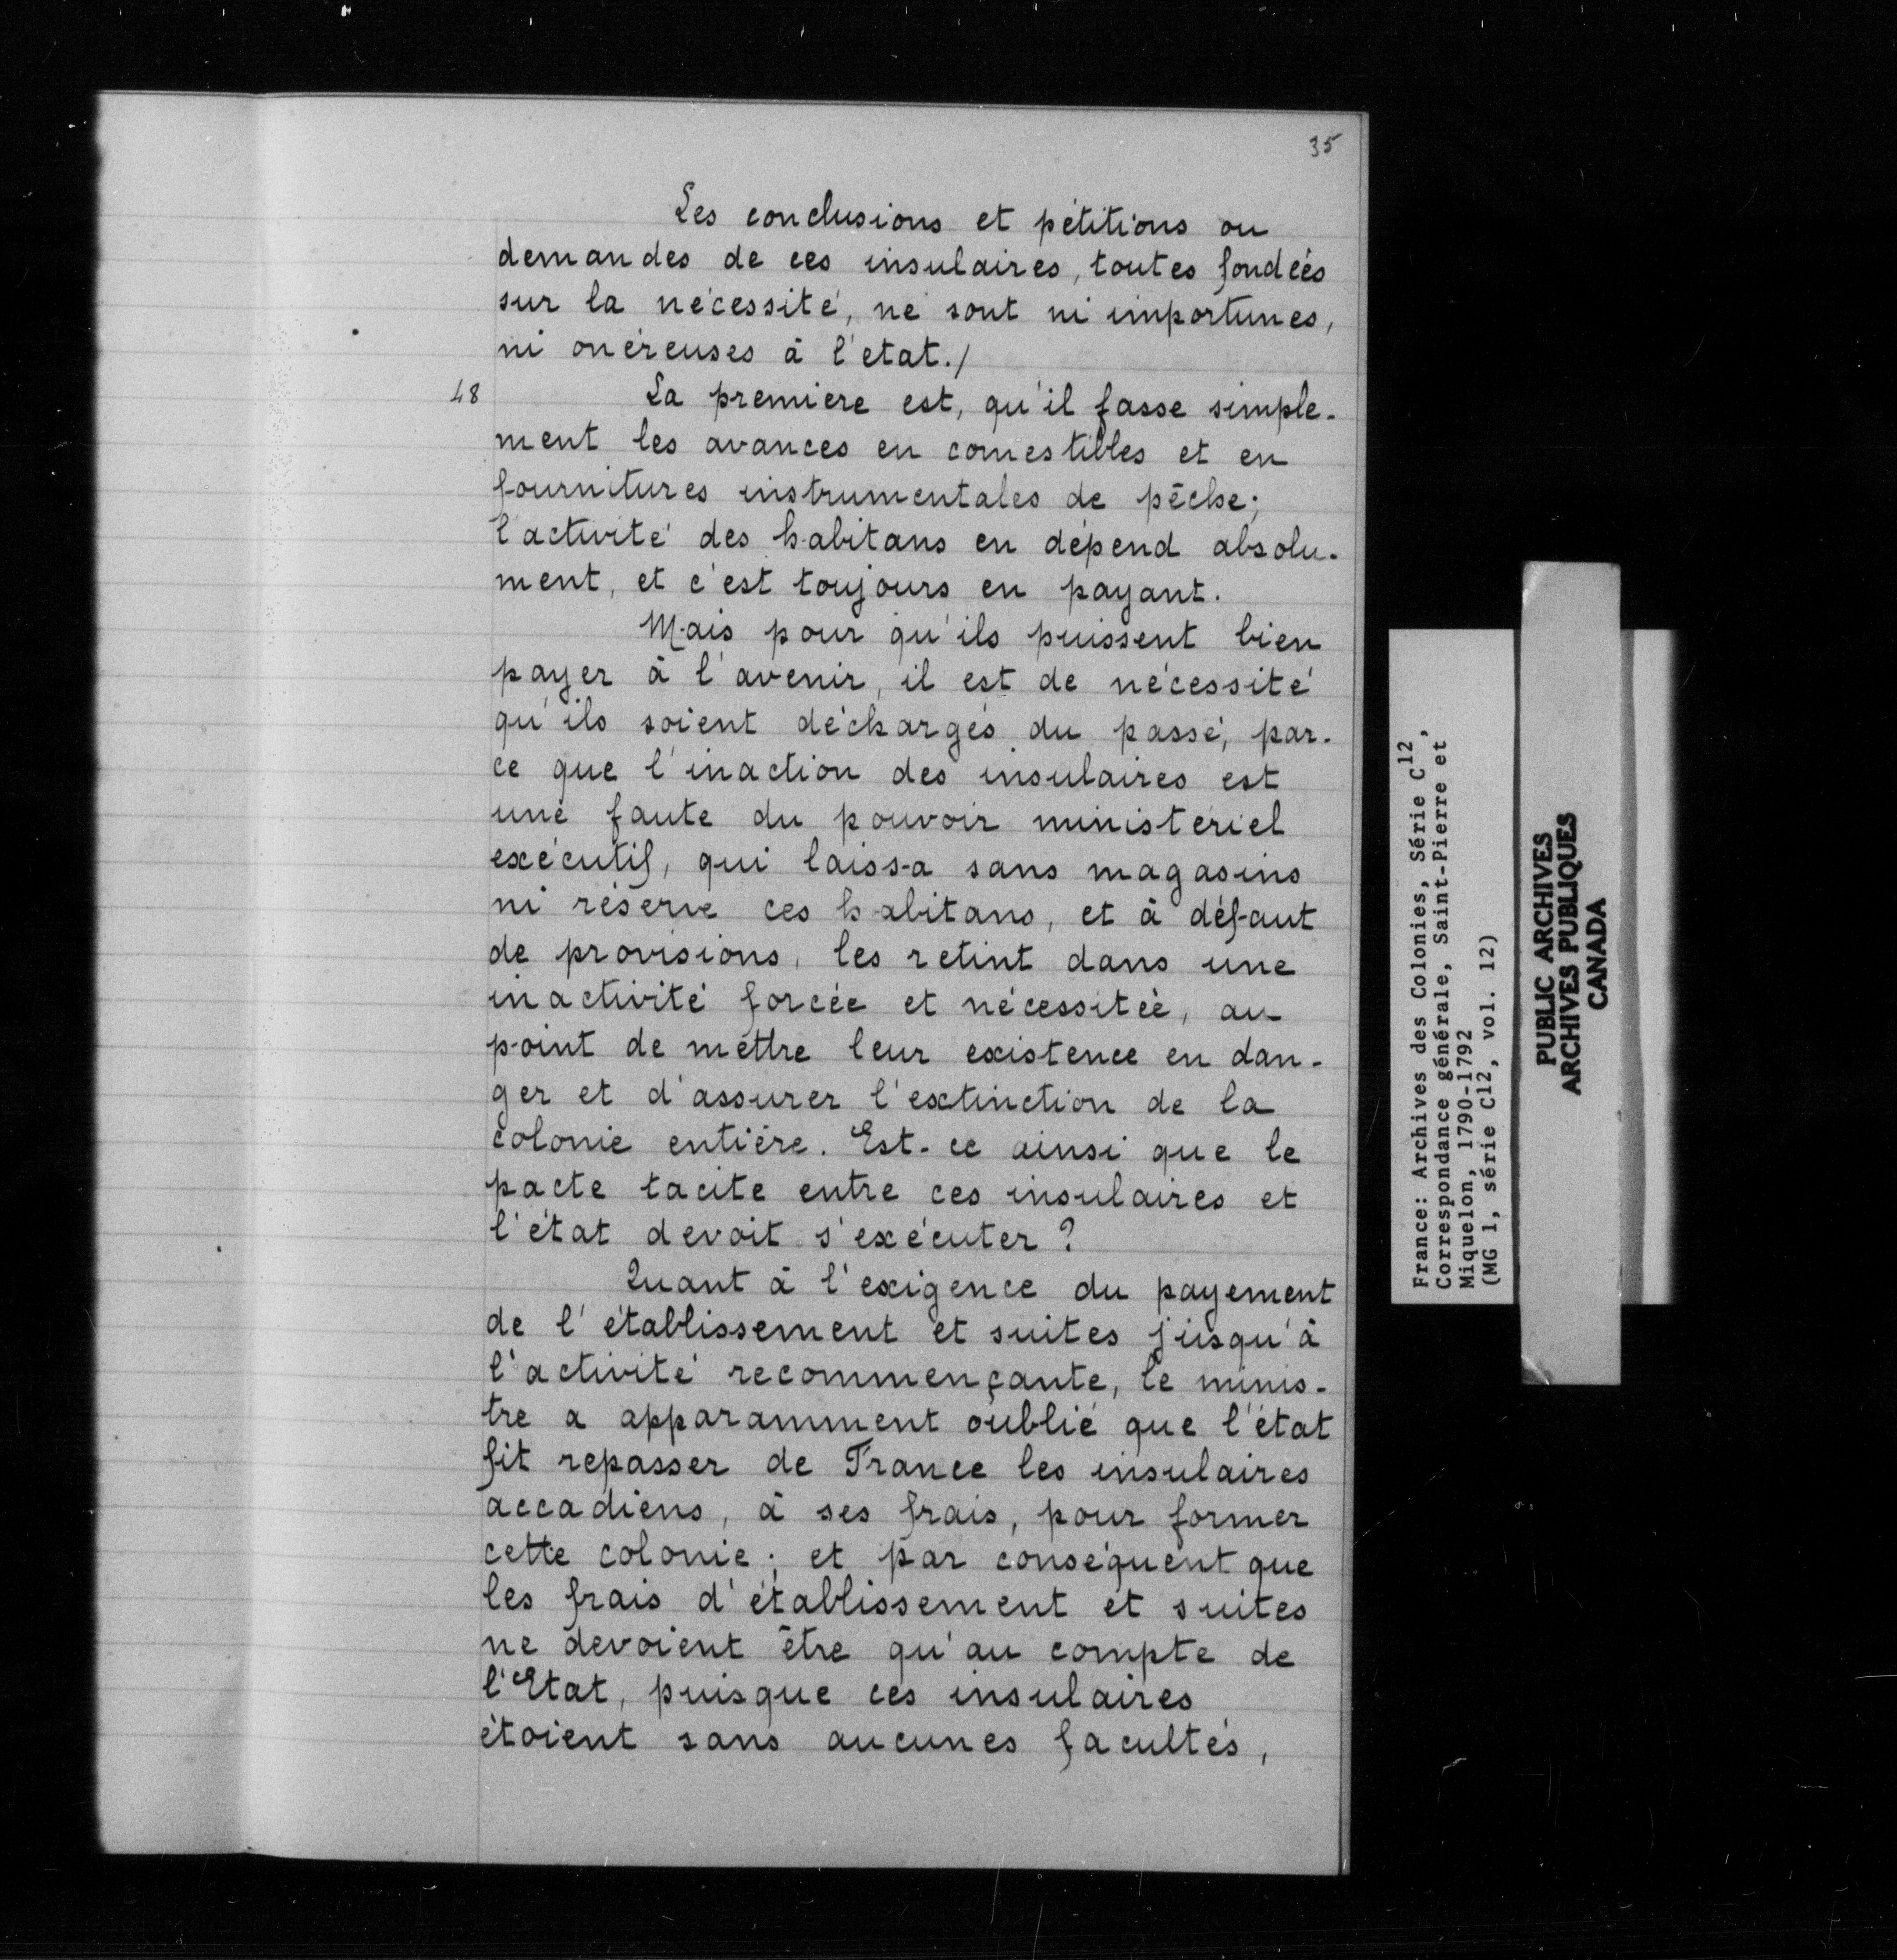 35
Les conclusions et pétitions ou
demandes de ces insulaires, toutes fondées
sur la nécessité, ne sont ni importunes,
ni onéreuses à l'etat./
48
La premiere est, qu'il fasse simple-
ment les avances en comestibles et en
fournitures instrumentales de pêche;
l'activité des habitans en dépend absolu-
ment, et c'est toujours en payant.
Mais pour qu'ils puissent bien
payer à l'avenir, il est de nécessité
qu'ils soient déchargés du passé, par-
ce que l'inaction des insulaires est
une faute du pouvoir ministeriel
exécutif, qui laissa sans magasins
ni réserve ces habitans, et à défaut
de provisions, les retint dans une
inactivité forcée et nécessitée, au
point de mettre leur existence en dan-
ger et d'assurer l'extinction de la
colonie entiére. Est-ce ainsi que le
pacte tacite entre ces insulaires et
l'état devoit s'exécuter?
Quant à l'exigence du payement
de l'établissement et suites jusqu'à
l'activité recommençante, le minis-
tre a apparamment oublié que l'état
fit repasser de France les insulaires
accadiens, à ses frais, pour former
cette colonie; et par conséquent que
les frais d'établissement et suites
ne devoient être qu'au compte de
l'Etat, puisque ces insulaires
étoient sans aucunes facultés,
France: Archives des Colonies, Série C12,
Correspondance générale, Saint-Pierre et
Miquelon, 1790-1792
(MG 1, série C12, vol. 12)
PUBLIC ARCHIVES
ARCHIVES PUBLIQUES
CANADA